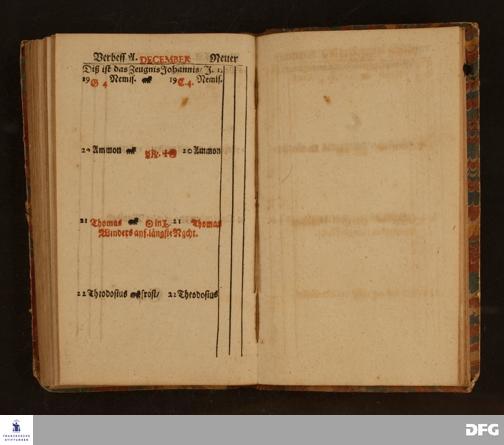 Verbess A. DECEMBER Neuer
Diß ist das Zeugnis Johannis/ J. 1.
19 G 4 Nemis. 19 C. 4. Nemis.
20 Ammon 20 Ammon
21 Thomas in 21 Thomas
Winters anf. längste Nacht.
22 Theodosius frost/ 22 Theodosius
FRANCKESCHE
STIFTUNGEN
DFG